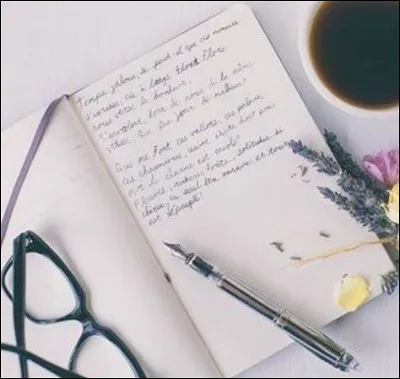 Temps jaloux, se peut-il que ces moments
d'ivresse, où à longs flots
nous verse le bonheur,
S'envolent loin de nous de la même
Que les jours de malheur?
Que me font ces vallons, ces palais,
ces chaumières, vains objets dont pour
moi le charme est envolé?
Fleuves, rochers, forêts, solitudes si
chères, un seul être manque et tout
est dépeuplé!